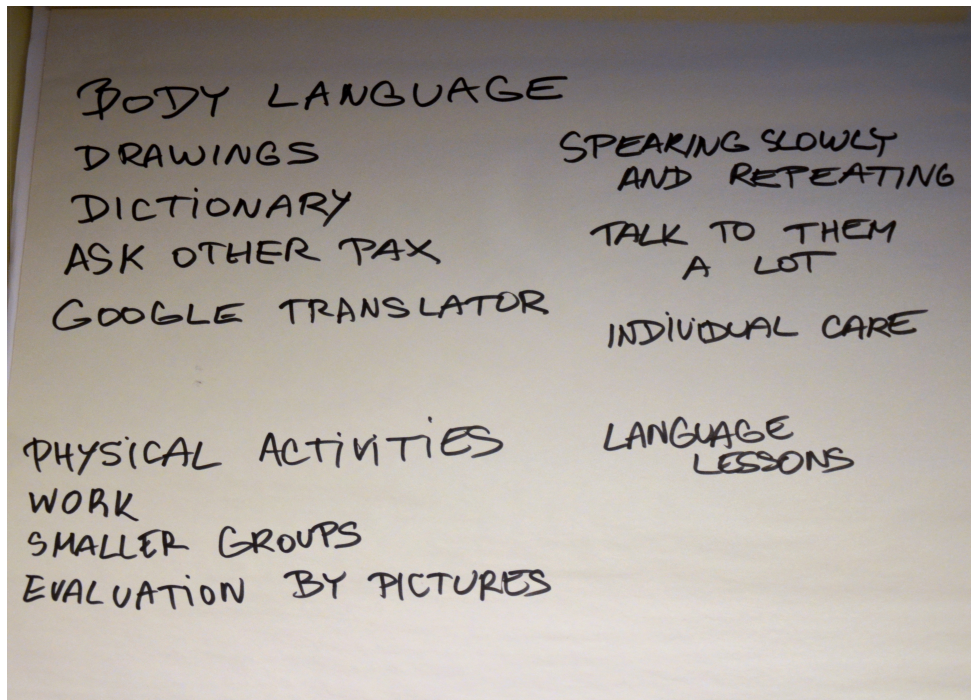 BODY LANGUAGE
DRAWINGS
DICTIONARY
ASK OTHER PAX
GOOGLE TRANSLATOR
PHYSICAL ACTIVITIES
WORK
SMALLER GROUPS
EVALUATION BY PICTURES
SPEARING SLOWLY
AND REPEATING
TALK TO THEM
A LOT
INDIVIDUAL CARE
LANGUAGE
LESSONS